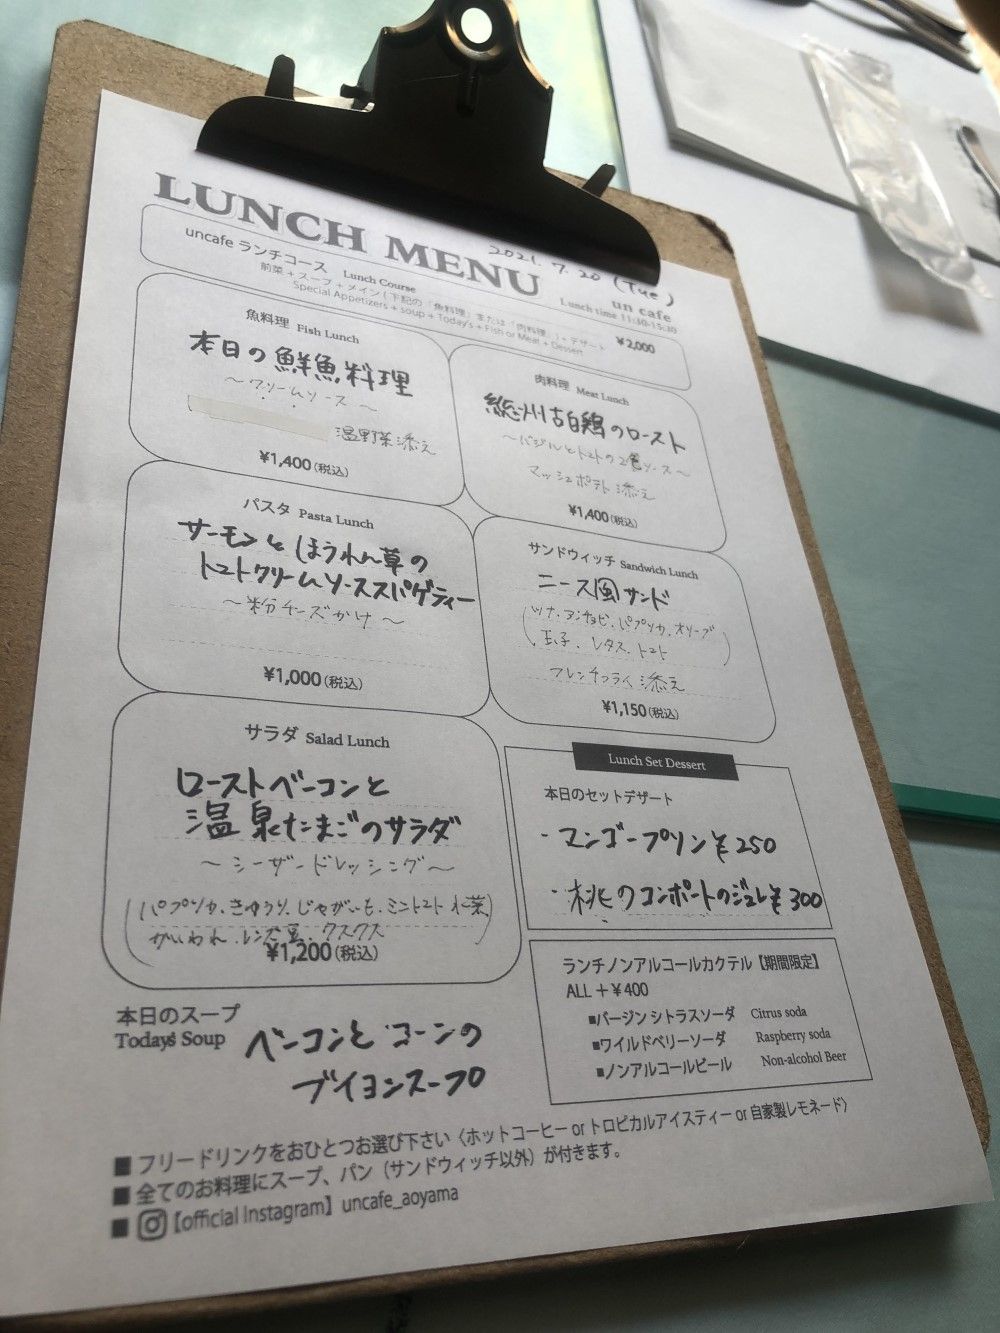 LUNCH MENU
2021. 7. 20 (Tue)
un cafe
Lunch time 11:30-15:30
uncafe ランチコース Lunch Course
前菜+スープ+メイン(下記の「魚料理」または「肉料理」)+デザート ¥2,000
Special Appetizers + soup + Today's + Fish or Meat + Dessert
魚料理 Fish Lunch
本日の鮮魚料理
～クリームソース～
温野菜添え
¥1,400(税込)
肉料理 Meat Lunch
総州古白鶏のロースト
～バジルとトマトの2色ソース～
マッシュポテト添え
¥1,400(税込)
パスタ Pasta Lunch
サーモンとほうれん草の
トマトクリームソーススパゲティー
～粉チーズかけ～
¥1,000(税込)
サンドウィッチ Sandwich Lunch
ニース風サンド
(ツナ、アンチョビ、パプリカ、オリーブ
玉子、レタス、トマト)
フレンチフライ添え
¥1,150(税込)
サラダ Salad Lunch
ローストベーコンと
温泉たまごのサラダ
～シーザードレッシング～
(パプリカ、きゅうり、じゃがいも、ミニトマト、水菜
かいわれ、レンズ豆、クスクス)
¥1,200(税込)
Lunch Set Dessert
本日のセットデザート
・マンゴープリン ¥250
・桃のコンポートのジュレ ¥300
ランチノンアルコールカクテル【期間限定】
ALL +¥400
■バージンシトラスソーダ Citrus soda
■ワイルドベリーソーダ Raspberry soda
■ノンアルコールビール Non-alcohol Beer
本日のスープ
Today's Soup
ベーコンとコーンの
ブイヨンスープ
■ フリードリンクをおひとつお選び下さい〈ホットコーヒー or トロピカルアイスティー or 自家製レモネード〉
■ 全てのお料理にスープ、パン（サンドウィッチ以外）が付きます。
■【official Instagram】uncafe_aoyama